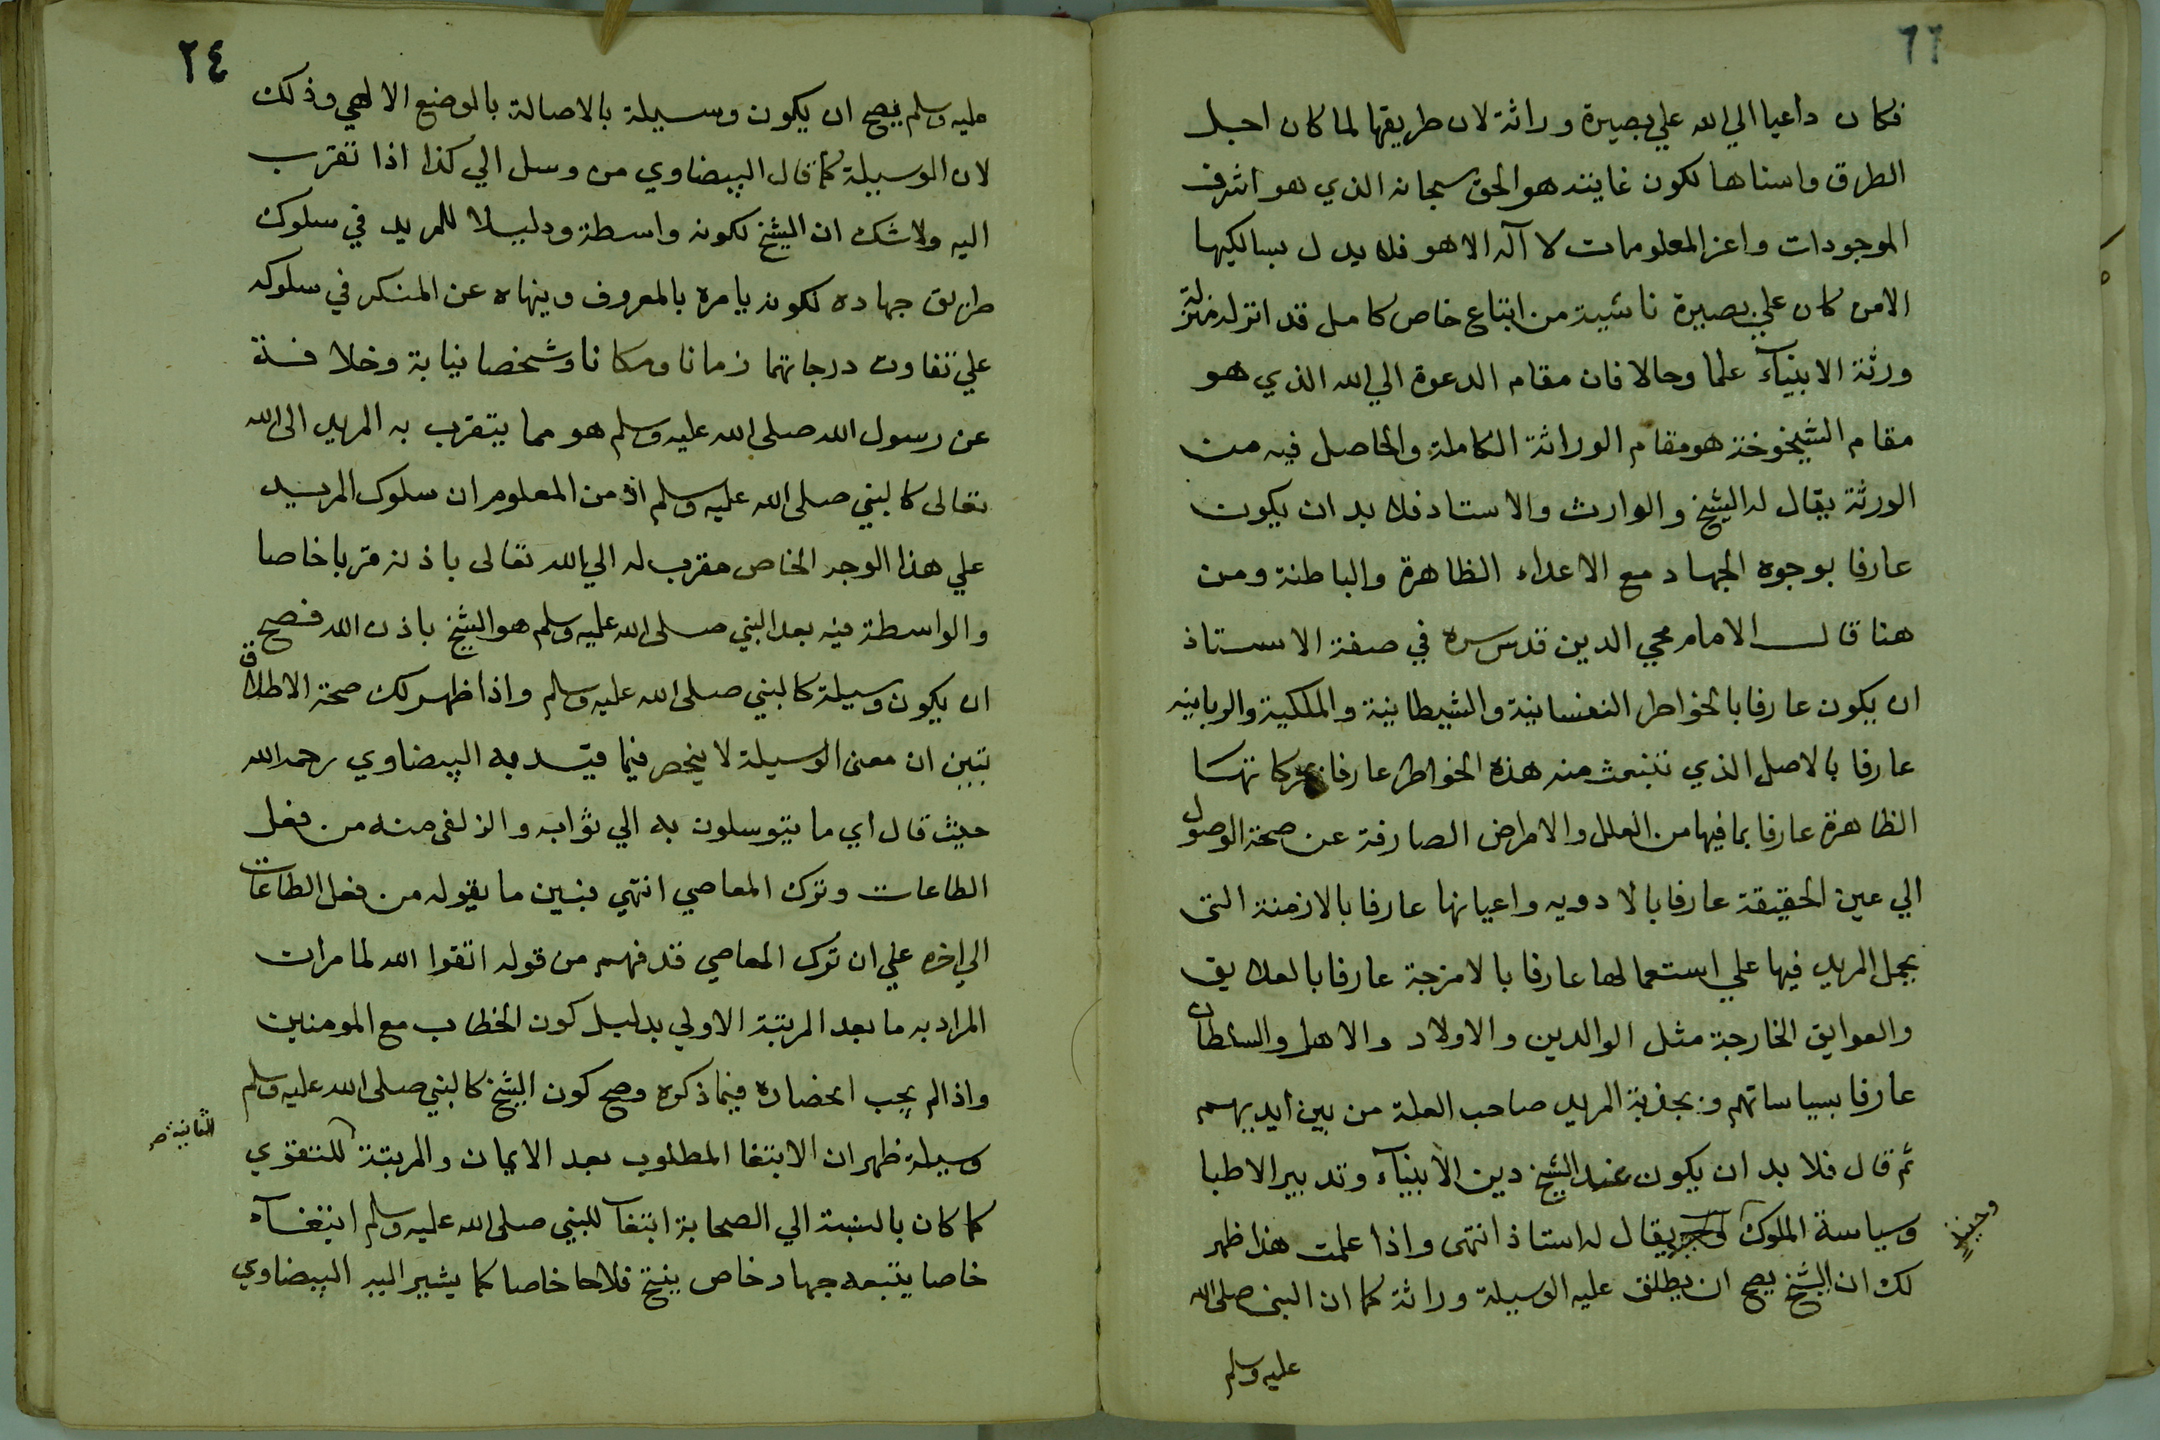 ٦٦
فكان داعيا الي الله علي بصيرة وراثة لان طريقها لما كان اجل
الطرق واسناها لكون غايته هو الحق سبحانه الذي هو اشرف
الموجودات واعز المعلومات لا آله الا هو فلا يدل بسالكيها
الا من كان علي بصيرة ناشية من اتباع خاص كامل قد انزله منزلة
ورثة الانبيآء علما وحالا فان مقام الدعوة الي الله الذي هو
مقام الشيخوخة هو مقام الوراثة الكاملة والحاصل فيه من
الورثة يقال له الشيخ والوارث والاستاد فلا بد ان يكون
عارفا بوجوه الجهاد مع الاعداء الظاهرة والباطنة ومن
هنا قال الامام محي الدين قدس سره في صفة الاستاذ
ان يكون عارفا بالخواطر النفسانية والشيطانية والملكية والربانيه
عارفا بالاصل الذي تنبعث منه هذه الخواطر عارفا بحركاتها
الظاهرة عارفا بما فيها من العلل والامراض الصارفة عن صحة الوصول
الي عين الحقيقة عارفا بالادويه واعيانها عارفا بالازمنة التى
يحمل المريد فيها علي استعمالها عارفا بالامزجة عارفا بالعلايق
والعوايق الخارجة مثل الوالدين والاولاد والاهل والسلطان
عارفا بسياساتهم وبجذبة المريد صاحب العلة من بين ايديهم
ثم قال فلا بد ان يكون عند الشيخ دين الانبيآء وتدبير الاطبا
وسياسة الملوك يقال له استاذ انتهى واذا علمت هذا ظهر
وحينئذٍ
لك ان الشيخ يصح ان يطلق عليه الوسيلة وراثة كما ان النبى صلى الله
عليه وسلم
٢٤
عليه وسلم يصح ان يكون وسيلة بالاصالة بالوضع الالهي وذلك
لان الوسيلة كما قال البيضاوي من وسل الي كذا اذا تقرب
اليه ولا شك ان الشيخ لكونه واسطة ودليلا للمريد في سلوك
طريق جهاده لكونه يامره بالمعروف وينهاه عن المنكر في سلوكه
علي تفاوت درجاتهما زمانا ومكانا وشخصا نيابة وخلافة
عن رسول الله صلى الله عليه وسلم هو مما يتقرب به المريد الى الله
تعالى كالنبي صلى الله عليه وسلم اذ من المعلوم ان سلوك المريد
علي هذا الوجه الخاص مقرب له الي الله تعالى باذنه قربا خاصا
والواسطة فيه بعد النبي صلى الله عليه وسلم هو الشيخ باذن الله فصح
ان يكون وسيلة كالنبي صلى الله عليه وسلم واذا ظهر لك صحة الاطلاق
تبين ان معنى الوسيلة لا ينحصر فيما قيد به البيضاوي رحمه الله
حيث قال اي ما يتوسلون به الي ثوابه والزلفى منه من فعل
الطاعات وترك المعاصي انتهي فبين ما يقوله من فعل الطاعات
الي اخره علي ان ترك المعاصي قد فهم من قوله اتقوا الله لما مر ان
المراد به ما بعد المرتبة الاولي بدليل كون الخطاب مع المومنين
واذا لم يجب انحصاره فيما ذكره وصح كون الشيخ كالنبي صلى الله عليه وسلم
وسيلة ظهر ان الابتغا المطلوب بعد الايمان والمرتبة للتقوي
الثانية صح
كما كان بالنسبة الي الصحابة ابتغآ للنبي صلى الله عليه وسلم ابتغآء
خاصا يتبعه جهاد خاص ينتج فلاحا خاصا كما يشير اليه البيضاوي